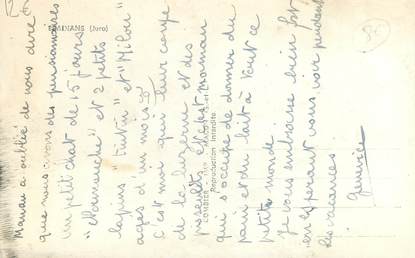 Maman a oublié de vous dire
que nous avons des pensionnaires
Un petit chat de 15 jours
"Normande" et 2 petits
lapins "Tintin" et "Milou"
agés d'un mois
c'est moi qui leur coupe
de la luzerne et des
pissenlits et c'est maman
qui s'occupe de donner du
pain et du lait à tout ce
petit monde
Je vous embrasse bien fort
en espérant vous voir pendant
les vacances
Geneviève
(Jura)
Reproduction interdite